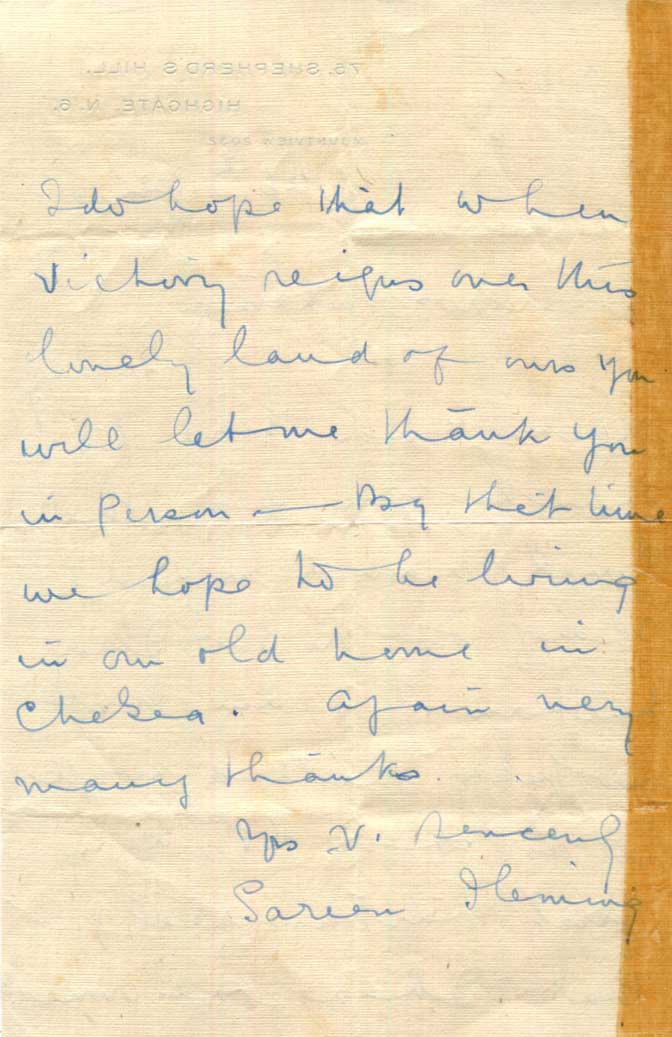 75, SHEPHERD'S HILL,
HIGHGATE, N. 6.
MOUNTVIEW 2032
I do hope that when
Victory reigns over this
lovely land of ours you
will let me thank you
in person — By that time
we hope to be living
in our old home in
Chelsea. Again very
many thanks.
Yrs V. Sincerely
Sareen Fleming